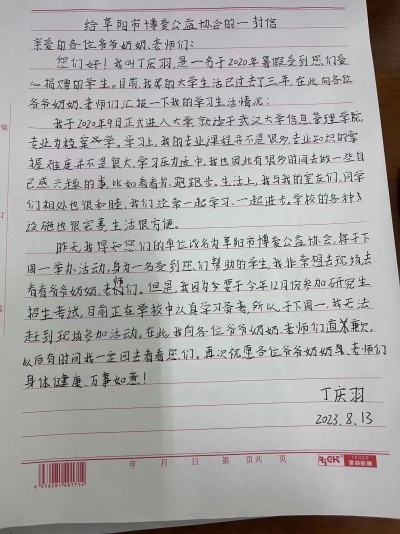 给阜阳市博爱公益协会的一封信
亲爱的各位爷爷奶奶、老师们：
您们好！我叫丁庆羽，是一名于2020年暑假受到您们爱
心捐赠的学生。目前，我的大学生活已过去了三年，在此向各位
爷爷奶奶、老师们汇报一下我的学习生活情况：
我于2020年9月正式进入大学，就读于武汉大学信息管理学院，
专业为档案学。学习上，我的专业课程并不是很多，专业知识的掌
握难度并不是很大，学习压力适中，我也因此有很多时间去做一些自
己感兴趣的事，比如看看书、跑跑步。生活上，我与我的室友们、同学
们相处也很和睦，我们经常一起学习、一起进步。学校的各种
设施也很完善，生活很方便。
昨天，我得知您们的单位改名为阜阳市博爱公益协会，将于下
周一举办活动。身为一名受到您们帮助的学生，我非常想去现场去
看看爷爷奶奶、老师们。但是，我因为要于今年12月份参加研究生
招生考试，目前正在学校中认真学习备考，所以，于下周一，我无法
赶到现场参加活动。在此，我向各位爷爷奶奶、老师们道歉，
以后有时间我一定回去看看您们。再次祝愿各位爷爷奶奶、老师们
身体健康，万事如意！
丁庆羽
2023.8.13
年 月 日 第 页共 页